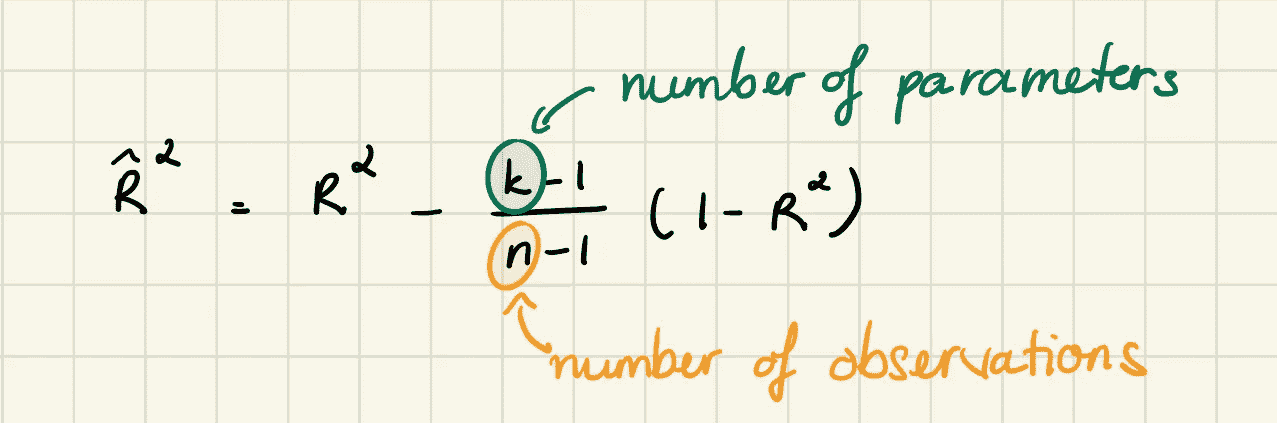 number of parameters
R̂² = R² − (k−1)/(n−1) (1−R²)
number of observations